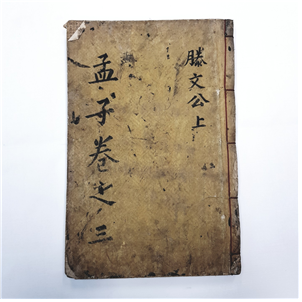 滕文公上
孟子卷之三